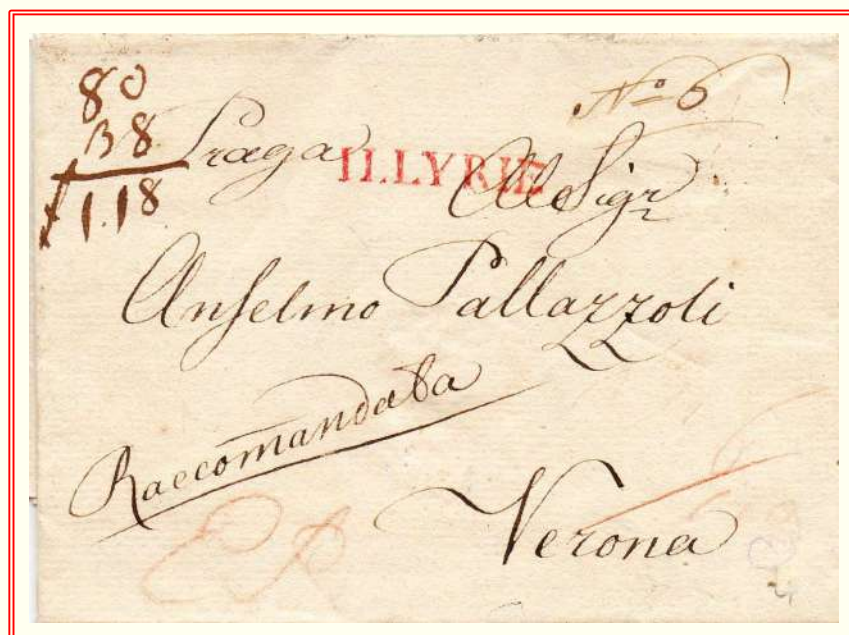 80
38
f 1.18
Praga
ILLYRIE
No 6
Al Sigr
Anselmo Pallazzoli
Raccomandata
Verona